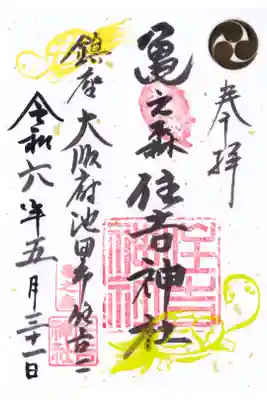 奉拝
亀之森住吉神社
鎮座 大阪府池田市住吉二
令和六年五月三十一日